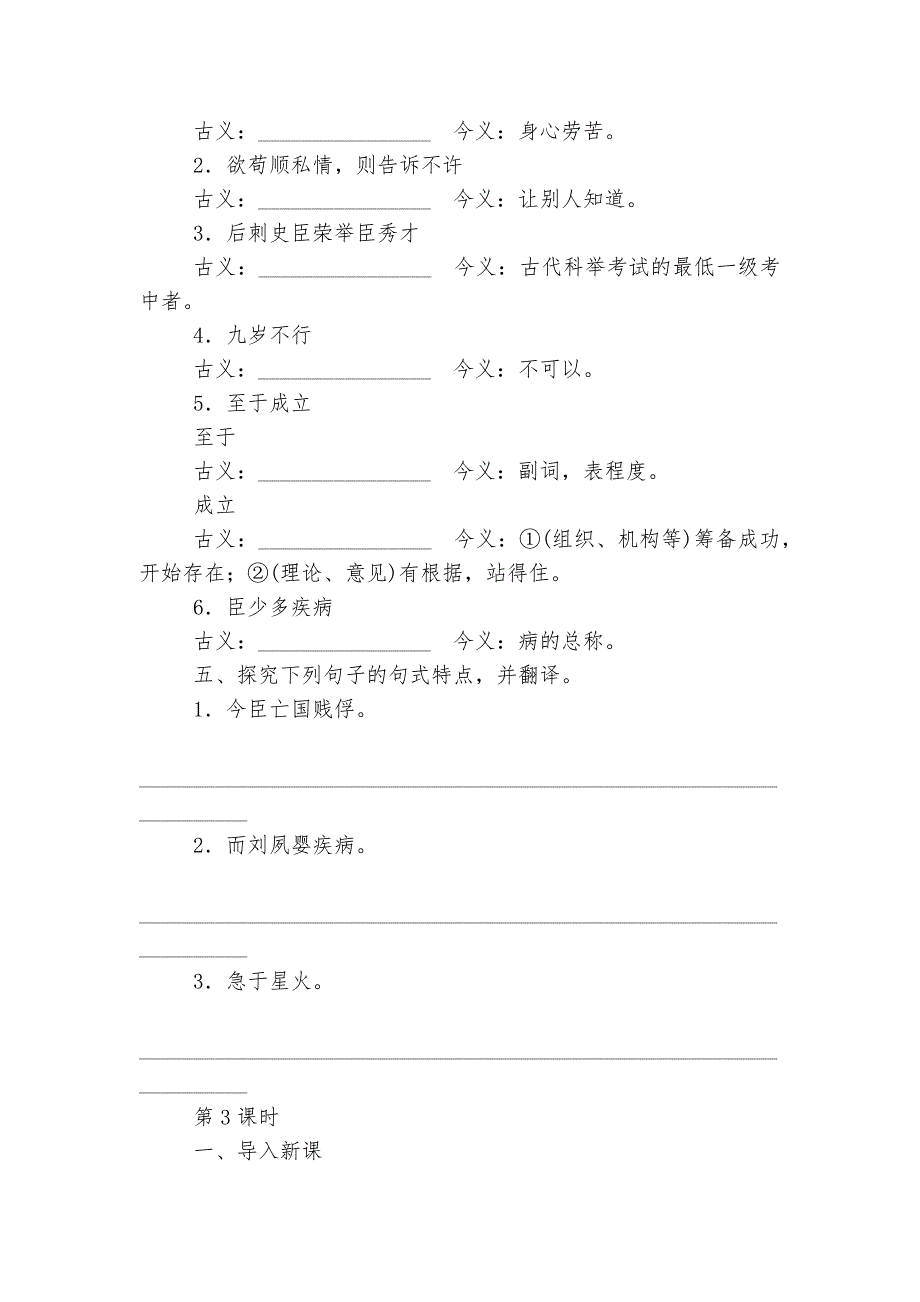 古义：________________  今义：身心劳苦。
2．欲苟顺私情，则告诉不许
古义：________________  今义：让别人知道。
3．后刺史臣荣举臣秀才
古义：________________  今义：古代科举考试的最低一级考
中者。
4．九岁不行
古义：________________  今义：不可以。
5．至于成立
至于
古义：________________  今义：副词，表程度。
成立
古义：________________  今义：①(组织、机构等)筹备成功，
开始存在；②(理论、意见)有根据，站得住。
6．臣少多疾病
古义：________________  今义：病的总称。
五、探究下列句子的句式特点，并翻译。
1．今臣亡国贱俘。
____________________________________________________________
__________
2．而刘夙婴疾病。
____________________________________________________________
__________
3．急于星火。
____________________________________________________________
__________
第3课时
一、导入新课